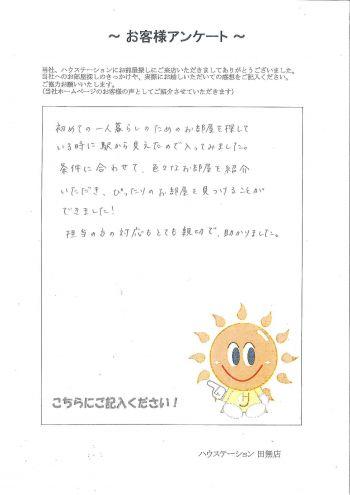 ～ お客様アンケート ～
当社、ハウスステーションにお部屋探しにご来店いただきましてありがとうございました。
当社へのお部屋探しのきっかけや、実際にお越しいただいての感想をご記入ください。
ご協力お願いいたします。
(当社ホームページのお客様の声としてご紹介させていただきます)
初めての一人暮らしのためのお部屋を探して
いる時に駅から見えたので入ってみました。
条件に合わせて、色々なお部屋を紹介
いただき、ぴったりのお部屋を見つけることが
できました!
担当の方の対応もとても親切で、助かりました。
こちらにご記入ください!
ハウスステーション 田無店